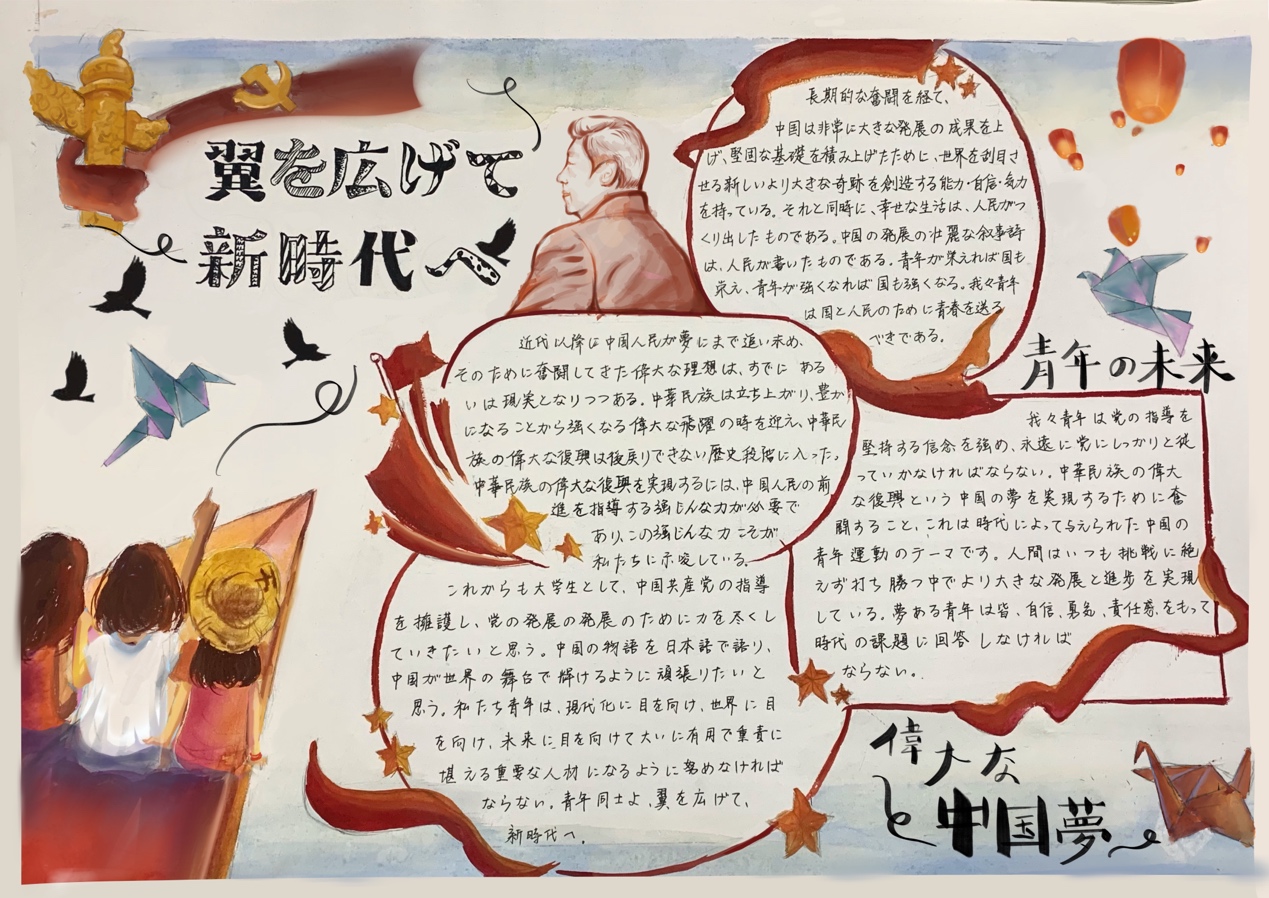 翼を広げて
新時代へ
長期的な奮闘を経て、
中国は非常に大きな発展の成果を上
げ、堅固な基礎を積み上げたために、世界を刮目さ
せる新しいより大きな奇跡を創造する能力・自信・気力
を持っている。それと同時に、幸せな生活は、人民がつ
くり出したものである。中国の発展の壮麗な叙事詩
は、人民が書いたものである。青年が栄えれば国も
栄え、青年が強くなれば国も強くなる。我々青年
は国と人民のために青春を送る
べきである。
近代以降は中国人民が夢にまで追い求め、
そのために奮闘してきた偉大な理想は、すでに ある
いは現実となりつつある。中華民族は立ち上がり、豊か
になることから強くなる偉大な飛躍の時を迎え、中華民
族の偉大な復興は後戻りできない歴史段階に入った。
中華民族の偉大な復興を実現するには、中国人民の前
進を指導する強じんな力が必要で
あり、この強じんな力こそが
私たちに示唆している。
これからも大学生として、中国共産党の指導
を擁護し、党の発展の発展のために力を尽くし
ていきたいと思う。中国の物語を日本語で語り、
中国が世界の舞台で輝けるように頑張りたいと
思う。私たち青年は、現代化に目を向け、世界に目
を向け、未来に目を向けて大いに有用で重責に
堪える重要な人材になるように努めなければ
ならない。青年同士よ、翼を広げて、
新時代へ。
青年の未来
我々青年は党の指導を
堅持する信念を強め、永遠に党にしっかりと従
っていかなければならない。中華民族の偉大
な復興という中国の夢を実現するために奮
闘すること、これは時代によって与えられた中国の
青年運動のテーマです。人間はいつも挑戦に絶
えず打ち勝つ中でより大きな発展と進歩を実現
している。夢ある青年は皆、自信、真知、責任感をもって
時代の課題に回答しなければ
ならない。
偉大な
と中国夢